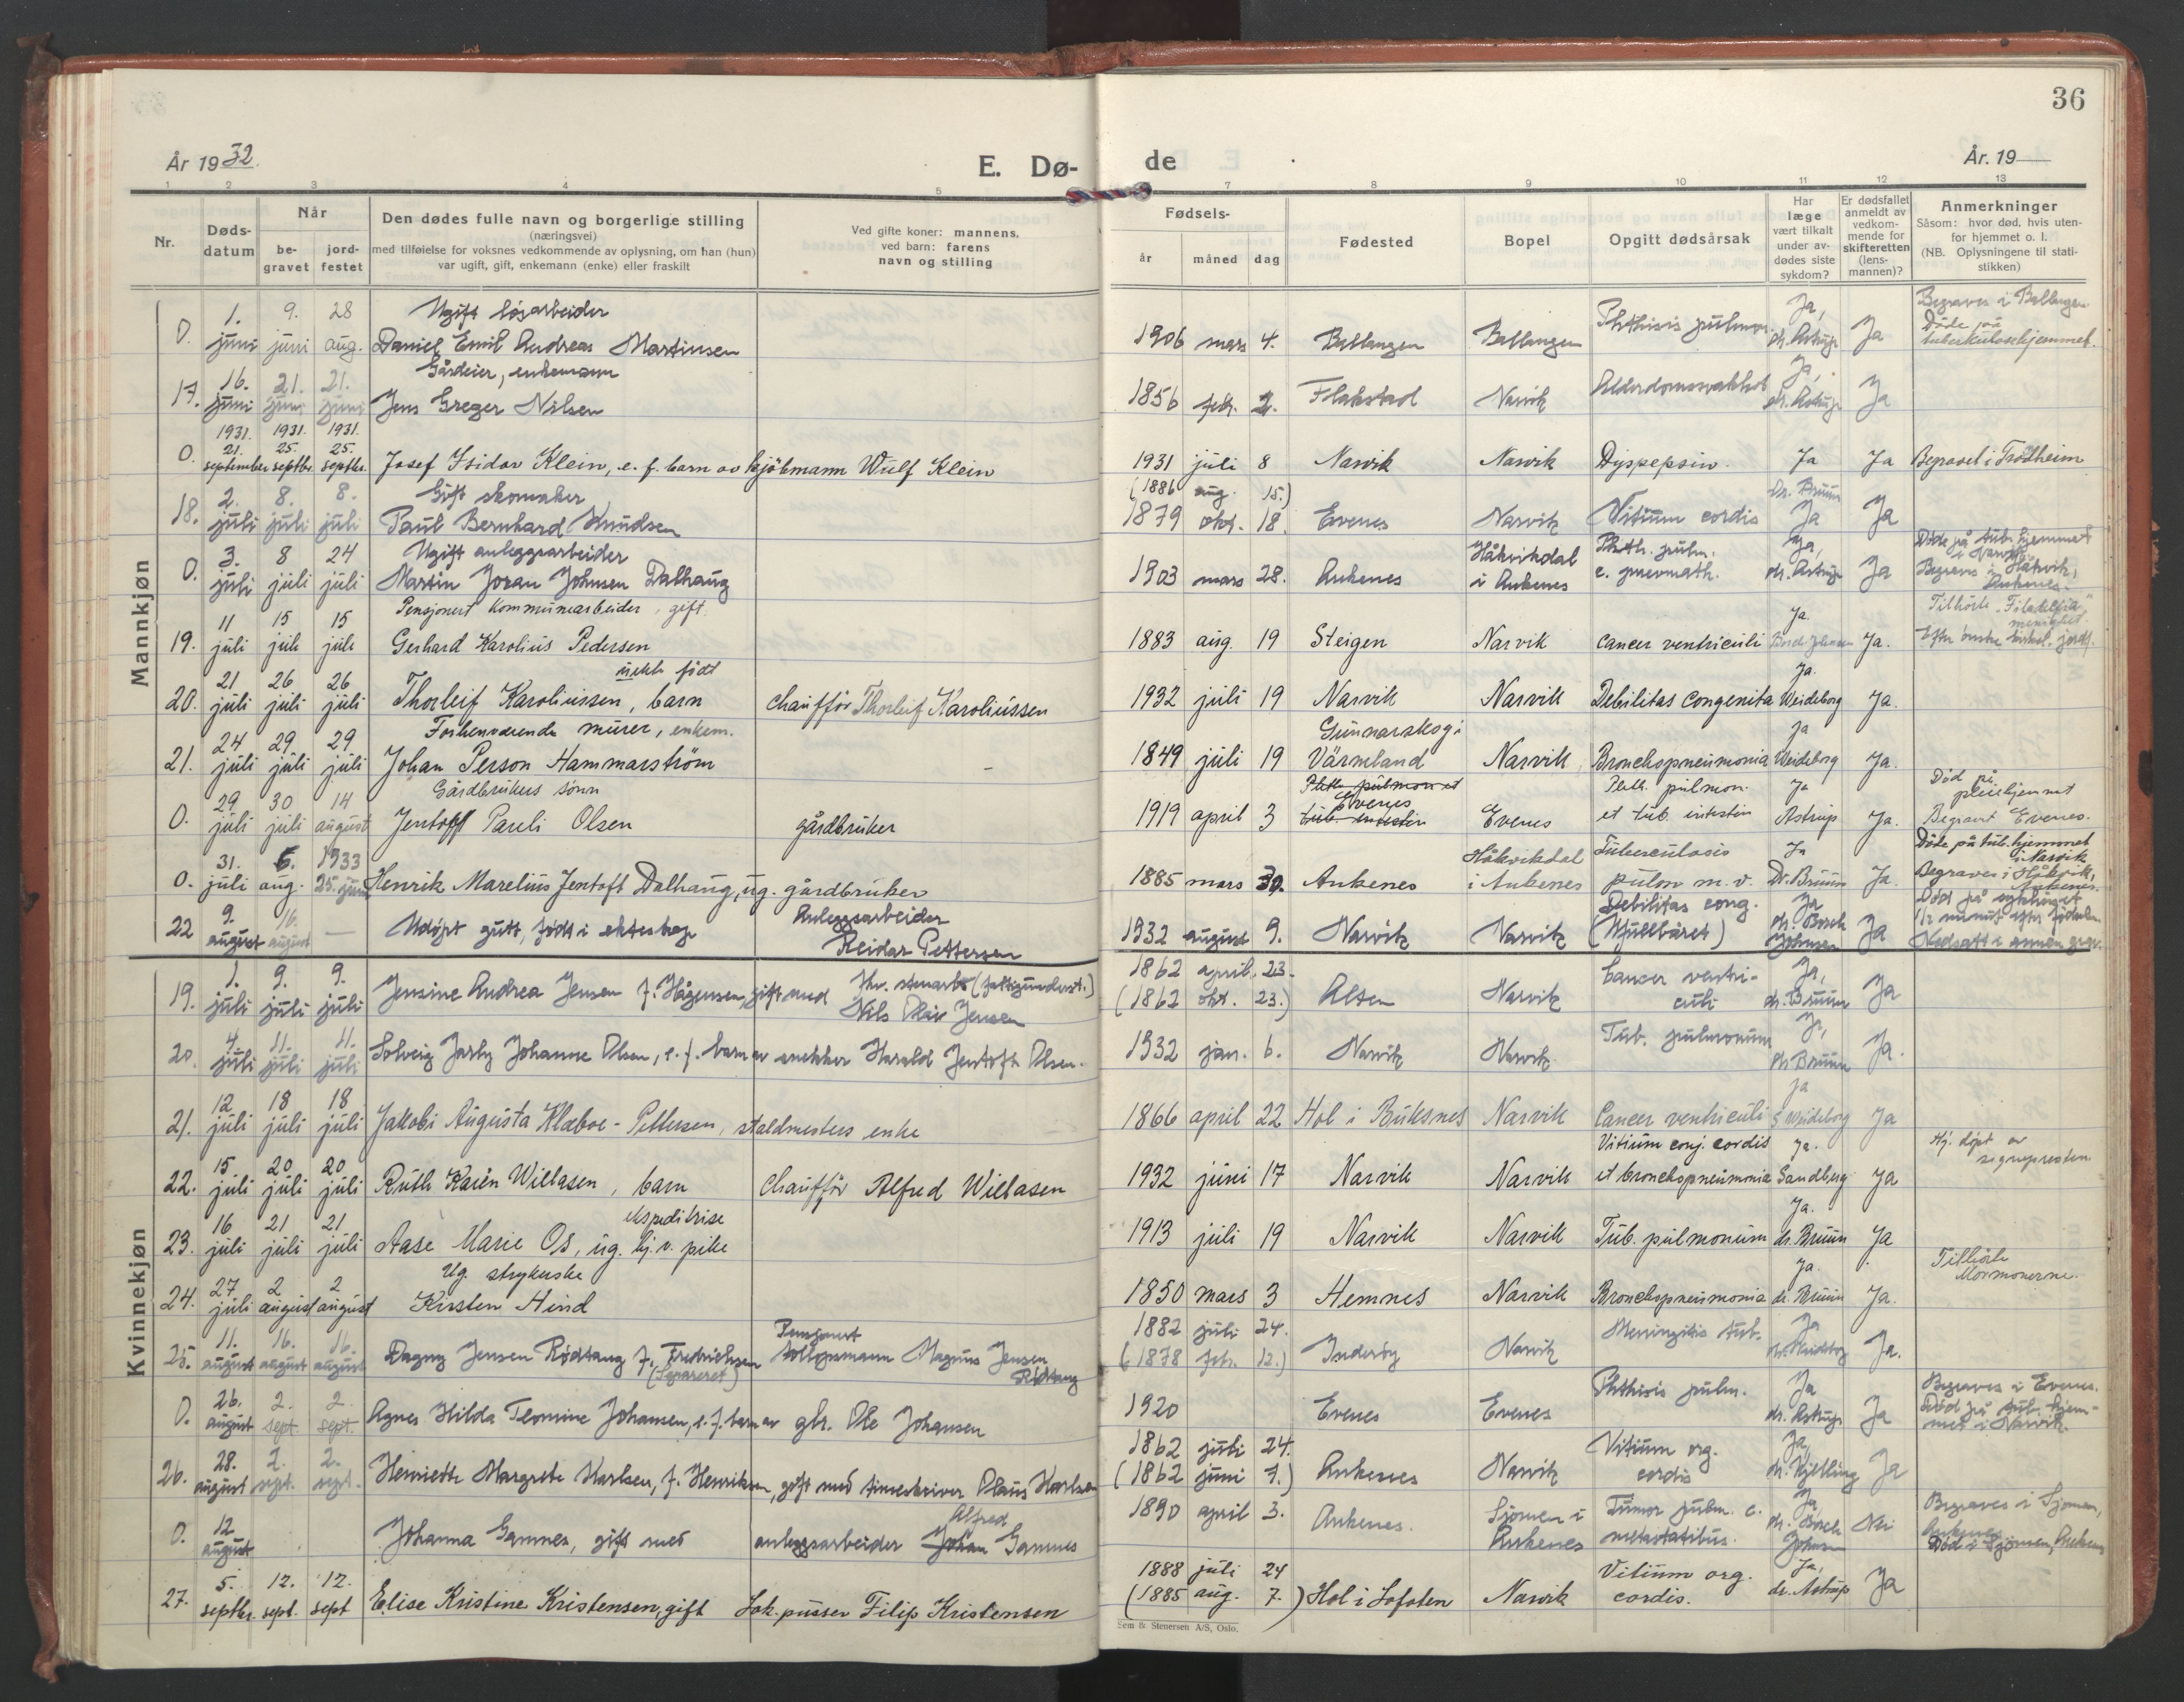 36
År 1932.
E. Dø-
de
År. 19
1 2 3 4 5
7 8 9 10 11 12 13
Nr.
Døds-
datum
Når
be-
gravet
jord-
festet
Den dødes fulle navn og borgerlige stilling
(næringsvei)
med tilføielse for voksnes vedkommende av oplysning, om han (hun)
var ugift, gift, enkemann (enke) eller fraskilt
Ved gifte koner: mannens,
ved barn: farens
navn og stilling
Fødsels-
år måned dag
Fødested
Bopel
Opgitt dødsårsak
Har
læge
vært tilkalt
under av-
dødes siste
sykdom?
Er dødsfallet
anmeldt av
vedkom-
mende for
skifteretten
(lens-
mannen)?
Anmerkninger
Såsom: hvor død, hvis uten-
for hjemmet o. l.
(NB. Oplysningene til stati-
stikken)
Mannkjøn
0. 1. juni 9. juni 28 aug. Ugift løsarbeider
Daniel Emil Andreas Martinsen 1906 mars 4. Ballangen Ballangen Phthisis pulmon. Ja, dr. Astrup Ja Begraves i Ballangen
Døde på
tuberkulosehjemmet.
17. 16. juni 21. juni 21. juni Gårdeier, enkemann
Jens Greger Nilsen 1856 febr. 2. Flakstad Narvik Alderdomssvakhet Ja, dr. Astrup Ja
0. 1931. 21. september 1931. 25. septbr. 1931. 25. septbr. Josef Isidor Klein, e. f. barn av kjøbmann Wulf Klein 1931 juli 8 Narvik Narvik Dyspepsin. Ja Ja Begravet i Trodheim
18. 2. juli 8. juli 8. juli Gift skomaker
Paul Bernhard Knudsen (1886 aug. 15.)
1879 okt. 18. Evenes Narvik Vitium cordis Dr. Bruun Ja Ja
0. 3. juli 8 juli 24 juli Ugift anleggsarbeider
Martin Johan Johnsen Dalhaug 1903 mars 28. Ankenes Håkvikdal
i Ankenes Phth. pulm.
c. pnevmoth. Ja, dr. Astrup Ja Døde på tub.hjemmet
i Narvik
Begraves i Håkvik,
Ankenes.
19. 11 juli 15 juli 15 juli Pensjonert kommunearbeider, gift.
Gerhard Karolius Pedersen 1883 aug. 19 Steigen Narvik Cancer ventriculi Ja. Ja. Tilhørte „Filadelfia"
menighet.
20. 21 juli 26 juli 26 juli ekte født
Thorleif Karoliussen, barn chauffør Thorleif Karoliussen 1932 juli 19 Narvik Narvik Debilitas congenita Ja. Weideborg Ja.
21. 24 juli 29 juli 29 juli Forhenværende murer, enkem.
Johan Person Hammarström 1849 juli 19 Gunnarskog i
Värmland Narvik Bronchopneumonia Ja Weideborg Ja.
0. 29 juli 30 juli 14 august Gårdbrukers sønn
Jentoft Pareli Olsen gårdbruker 1919 april 3 Phth. pulmon et
tub. intestin
Evenes Evenes Phth. pulmon.
et tub. intestin Ja Astrup Ja. Død på
pleiehjemmet
Begravet Evenes.
0. 31. juli 6. aug. 1933 25. juni Henrik Marelius Jentoft Dalhaug, ug. gårdbruker 1885 mars 30. Ankenes Håkvikdal
i Ankenes Tuberculosis
pulm m. v. Ja Dr. Bruun Ja. Døde på tub.hjemmet
i Narvik
Begraves i Håkvik,
Ankenes.
22 9. august 16. august — Udøpt gutt, født i ekteskap Anleggsarbeider
Reidar Pettersen 1932 august 9. Narvik Narvik Debilitas cong.
(Misfillbåret) Ja dr. Borch Johnsen Ja Død på sykehuset
1/2 minut eftr. fødselen
Nedsatt i annen grav.
Kvinnekjøn
19. 1. juli 9. juli 9. juli Jensine Andrea Jensen f. Hågensen, gift med Fhv. stuearb. (fattigunderst.)
Nils Olai Jensen 1862 april. 23.
(1862 okt. 23.) Alten Narvik Cancer ventri-
culi Ja, dr. Bruun Ja
20. 4. juli 11. juli 11. juli Solveig Jarby Johanne Olsen, e. f. barn av snekker Harald Jentoft Olsen. 1932 jan. 6. Narvik Narvik. Tub. pulmonum Ja, dr. Bruun Ja.
21. 12 juli 18 juli 18 juli Jakobi Augusta Klæboe-Pettersen, staldmesters enke 1866 april 22 Hol i Buksnes Narvik Cancer ventriculi Ja Weideborg Ja
22. 15. juli 20 juli 20 juli Ruth Karin Willasen, barn Chauffør Alfred Willasen 1932 juni 17 Narvik Narvik Vitium conj. cordis
et bronchopneumonia Ja. Sandberg Ja Hj. døpt av
sognepresten.
23. 16 juli 21 juli 21 juli ekspeditrise
Aase Marie Os, ug. hj. v. pike 1913 juli 19 Narvik Narvik Tub. pulmonum Ja. dr. Bruun Ja
24. 27 juli 2 august 2 august Ug. strykerske
Kirsten Hind 1850 mars 3 Hemnes Narvik Bronchopneumonia Ja. dr. Bruun Ja. Tilhørte
Mormonerne.
25. 11. august 16. august 16. august Dagny Jensen Rødtang f. Fredriksen
(Separeret) Pensjonert
tollopsmann Magnus Jensen
Rødtang 1882 juli 24.
(1878 febr. 12.) Inderøy Narvik Meningitis tub. Ja dr. Weideborg Ja.
0. 26. august 2. sept. 2. sept. Agnes Hilda Teomine Johansen, e. f. barn av gbr. Ole Johansen 1920 Evenes Evenes Phthisis pulm. Ja dr. Astrup Ja Begraves i Evenes.
Død på tub. hjem-
met i Narvik.
26. 28. august 2. sept. 2. sept. Henriette Margrete Karlsen, f. Henriksen, gift med timeskriver Olaus Karlsen 1862 juli 24.
(1862 juni 7.) Ankenes Narvik Vitium org.
cordis Ja, dr. Kjelling Ja
0. 12 august Johanna Gamnes, gift med anleggsarbeider Johan Alfred Gamnes 1890 april 3. Ankenes. Sjomen i
Ankenes Tumor pulm. c.
metastatibus. Ja dr. Borch Johnsen Nei Begraves i Sjomen,
Ankenes
Død i Sjomen, Ankenes
27. 5. septbr. 12. sept. 12. sept Elise Kristine Kristensen, gift Lok.pusser Filip Kristensen 1888 juli 24
(1885 aug. 7.) Hol i Lofoten Narvik Vitium org.
cordis. Ja, dr. Astrup Ja
Sem & Stenersen A/S, Oslo.